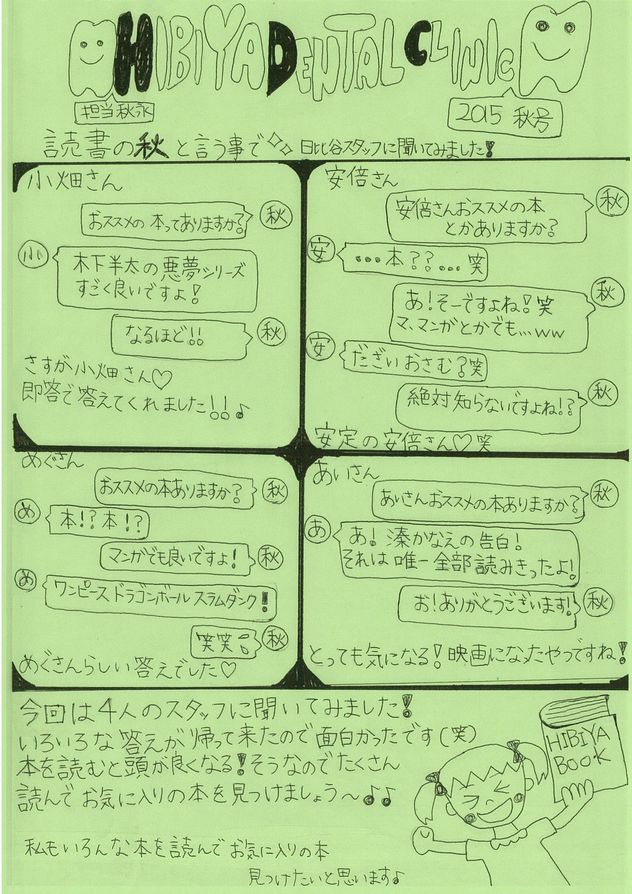 HIBIYA DENTAL CLINIC
担当 秋永
2015 秋号
読書の秋と言う事で 日比谷スタッフに聞いてみました!
小畑さん
おススメの本ってありますか?
秋
小
木下半太の悪夢シリーズ
すごく良いですよ!
なるほど!!
秋
さすが小畑さん♡
即答で答えてくれました!!♪
安倍さん
安倍さんおススメの本
とかありますか?
秋
安
…本??…笑
あ!そーですよね!笑
マ、マンガとかでも…ww
秋
安
だざいおさむ?笑
絶対知らないですよね!?
秋
安定の安倍さん♡笑
めぐさん
おススメの本ありますか?
秋
め
本!?本!?
マンガでも良いですよ!
秋
め
ワンピース ドラゴンボール スラムダンク!
笑笑
秋
めぐさんらしい答えでした♡
あいさん
あいさんおススメの本ありますか?
秋
あ
あ!湊かなえの告白!
それは唯一全部読みきったよ!
お!ありがとうございます!
秋
とっても気になる!映画になったやつですね!
今回は4人のスタッフに聞いてみました!
いろいろな答えが帰って来たので面白かったです(笑)
本を読むと頭が良くなる!そうなのでたくさん
読んでお気に入りの本を見つけましょう〜♪♪
HIBIYA
BOOK
私もいろんな本を読んでお気に入りの本
見つけたいと思います♪